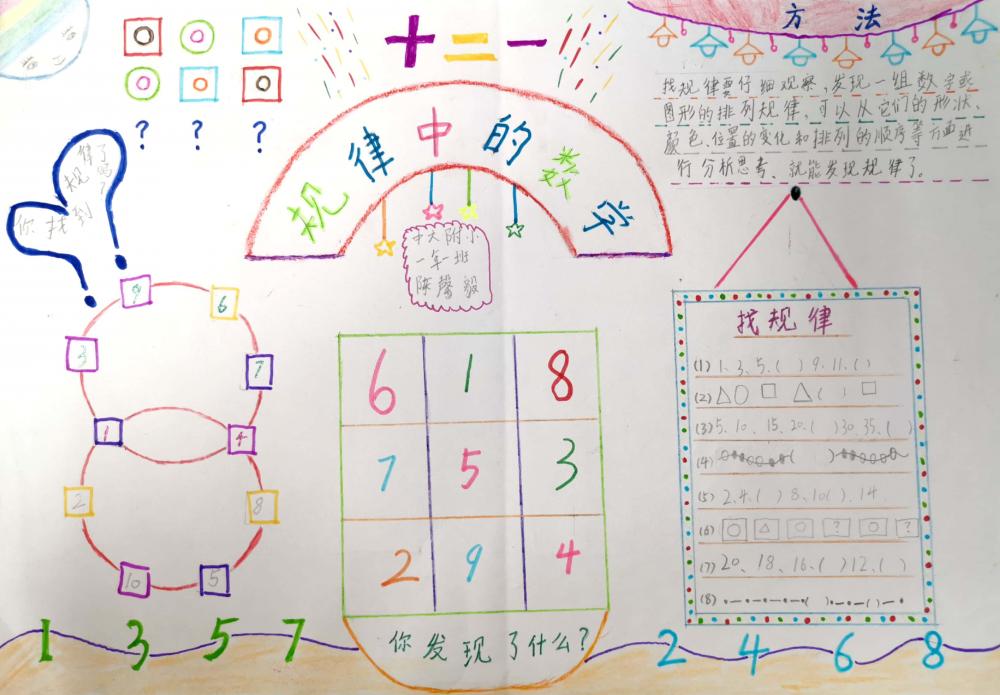 十二一
方法
? ? ?
规律中的数学
找规律要仔细观察,发现一组数字或
图形的排列规律,可以从它们的形状、
颜色、位置的变化和排列的顺序等方面进
行分析思考、就能发现规律了。
你找到
规律了
吗?
大附小
一年一班
陈馨毅
9 6
3 7
1 4
2 8
10 5
6 1 8
7 5 3
2 9 4
你发现了什么?
找规律
(1) 1、3、5、( ) 9、11、( )
(2) △○ □ △( ) □
(3) 5、10、15、20、( )30、35、( )
(4) ( )
(5) 2、4、( ) 8、10( )、14
(6) ○ △ ○ ? ○ ?
(7) 20、18、16、( )12、( )
(8) ( ) ( )
1 3 5 7
2 4 6 8